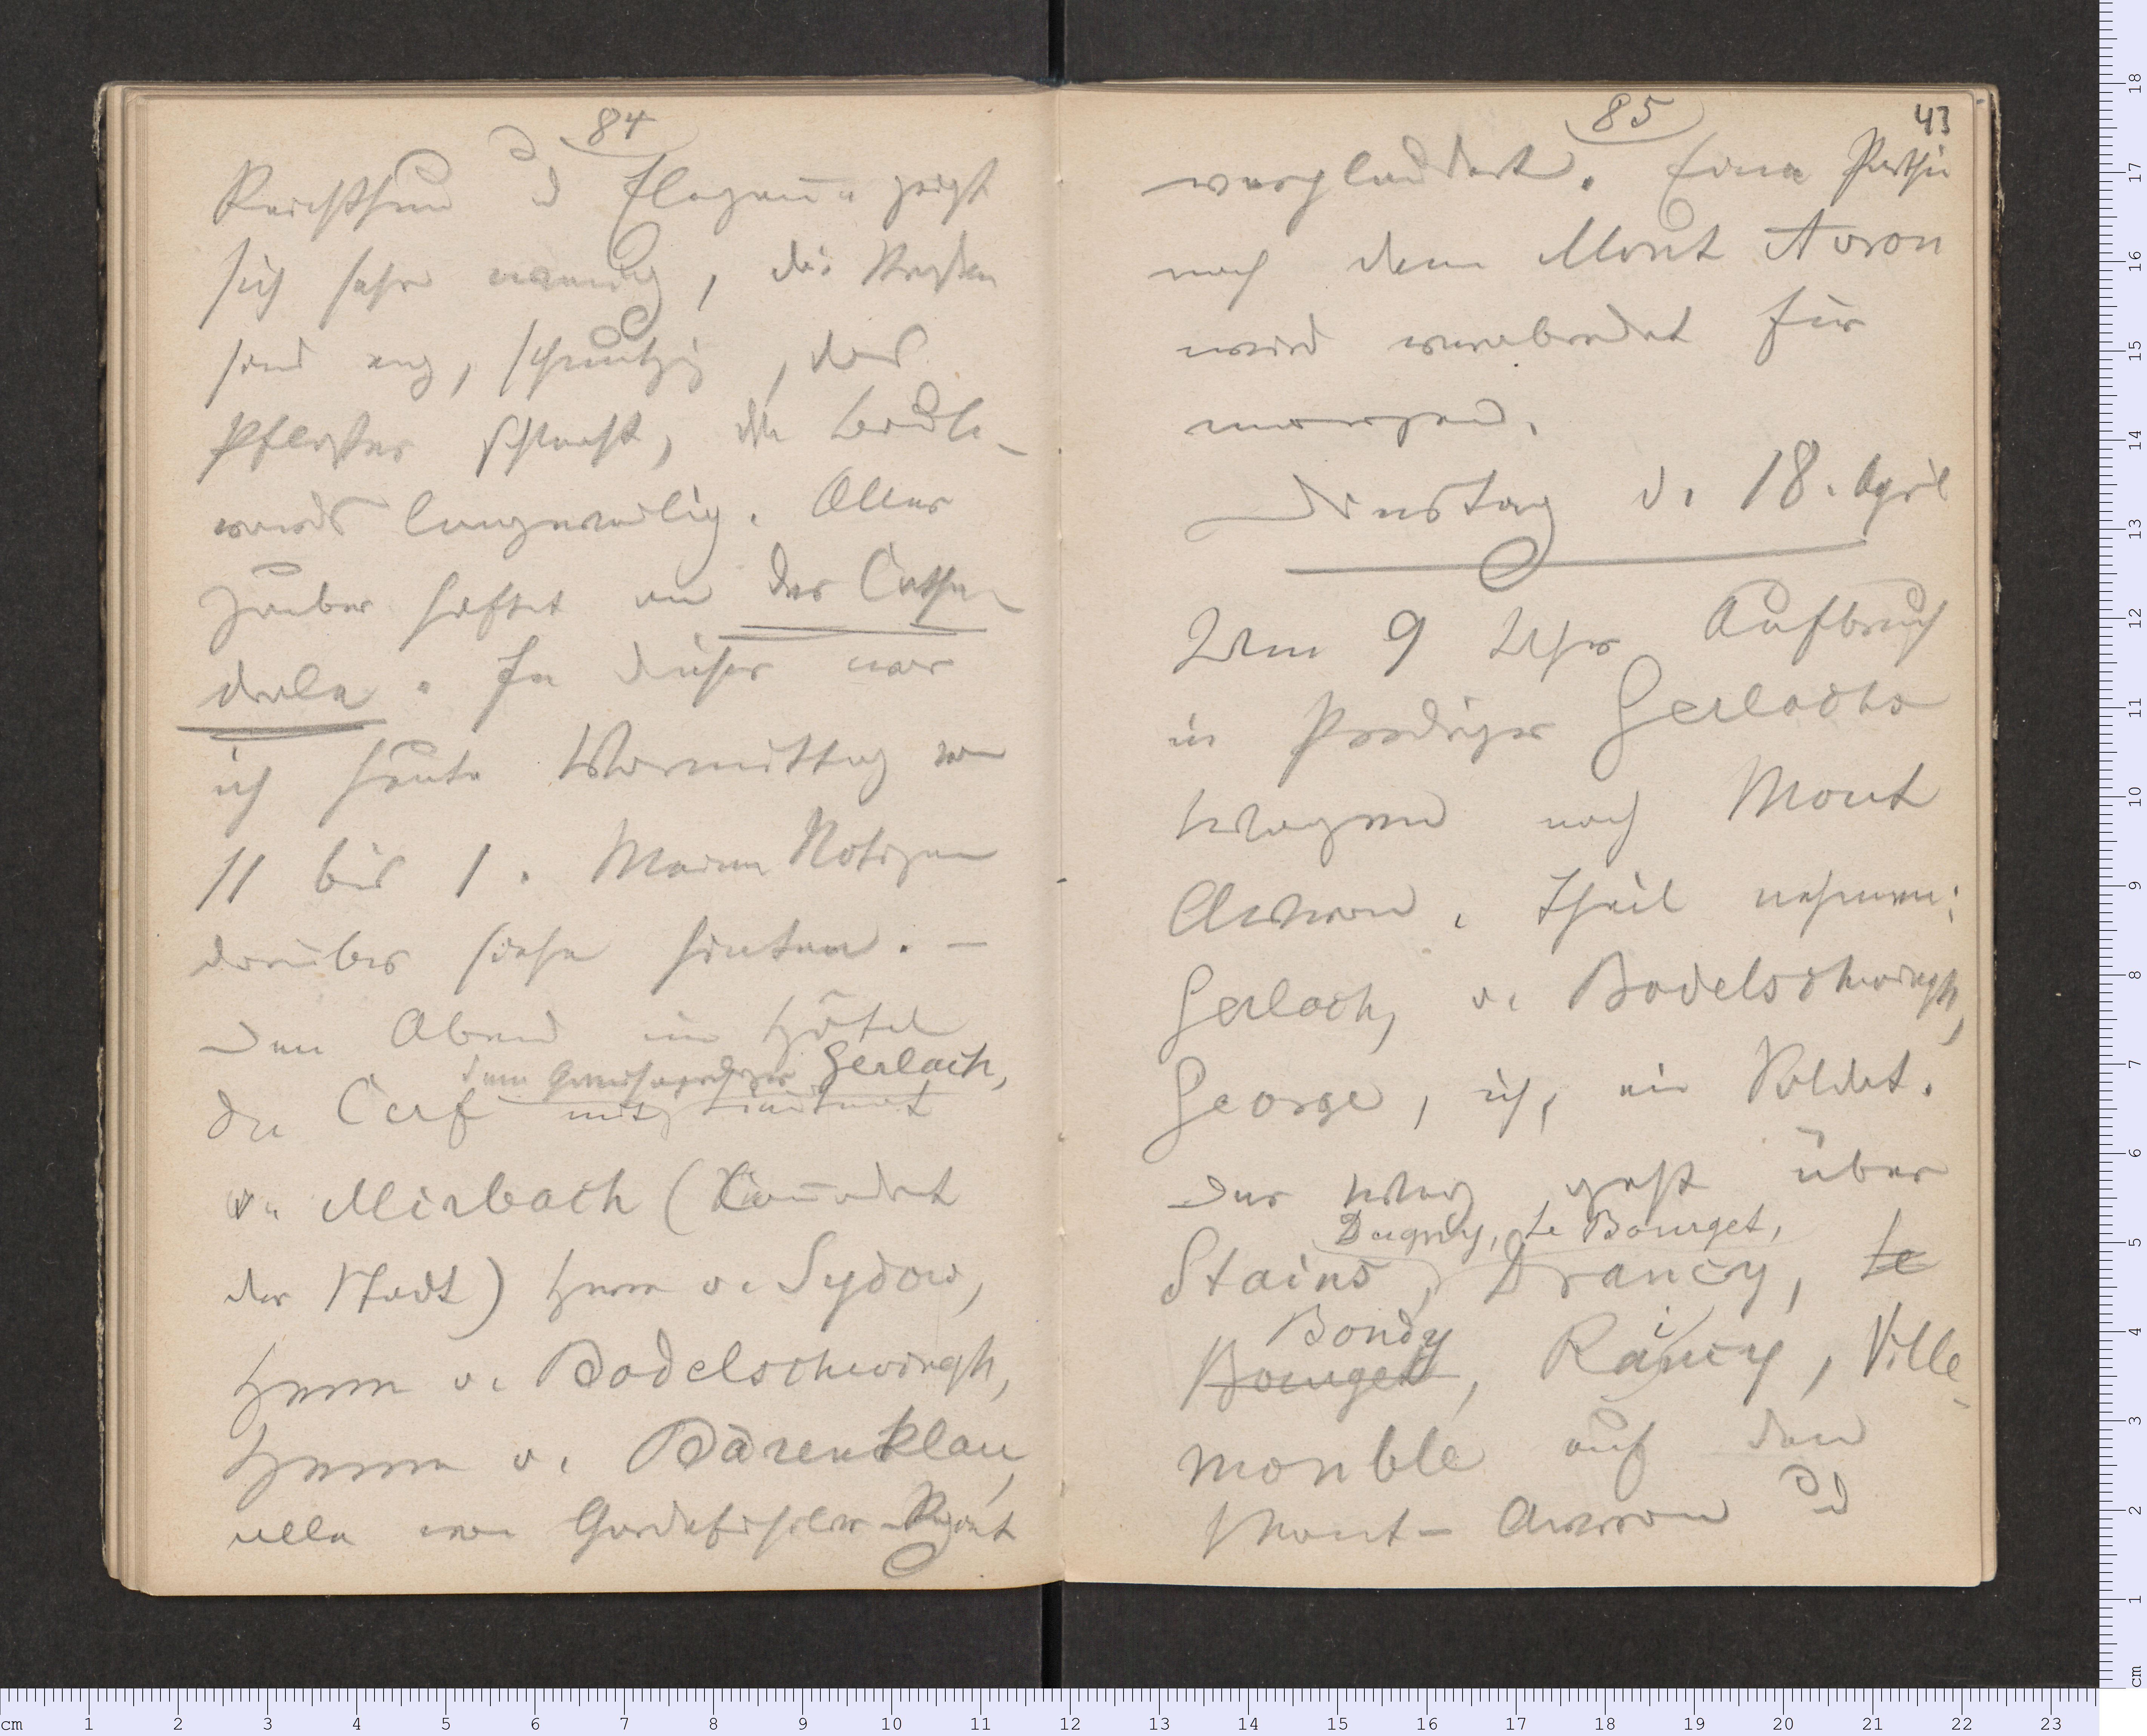 84
Reichthum u Eleganz zeigt
sich sehr wenig, die Straßen
sind eng, schmutzig, das
Pflaster schlecht, die Boule-
vards langweilig. Aller
Zauber haftet an der Cathe-
drale. In dieser war
ich heute Vormittag von
11 bis 1. Meine Notizen
darüber siehe hinten. –
Den Abend im Hôtel
dem Gerlach,
du Cerf mit Lieutenant
v. Mirbach (Kom̄andant
der Stadt) Herrn v. Sydow,
Herrn v. Bodelschwingh,
Herrn v. Bärenklau,
alle vom Gardefüsilier-Regimt
85
43
verplaudert. Eine Parthie
nach dem Mont Avron
wird verabredet für
morgen.
Dinstag d. 18. April
Um 9 Uhr Aufbruch
in Prediger Gerlachs
Wagen nach Mont
Avron. Theil nehmen:
Gerlach, v. Bodelschwingh,
George, ich, ein Soldat.
Der Weg geht über
Dugny, Le Bourget,
Stains, Drancy, Le
Bondy
Bourget, Raincy, Ville-
monble auf den
Mont-Avron u